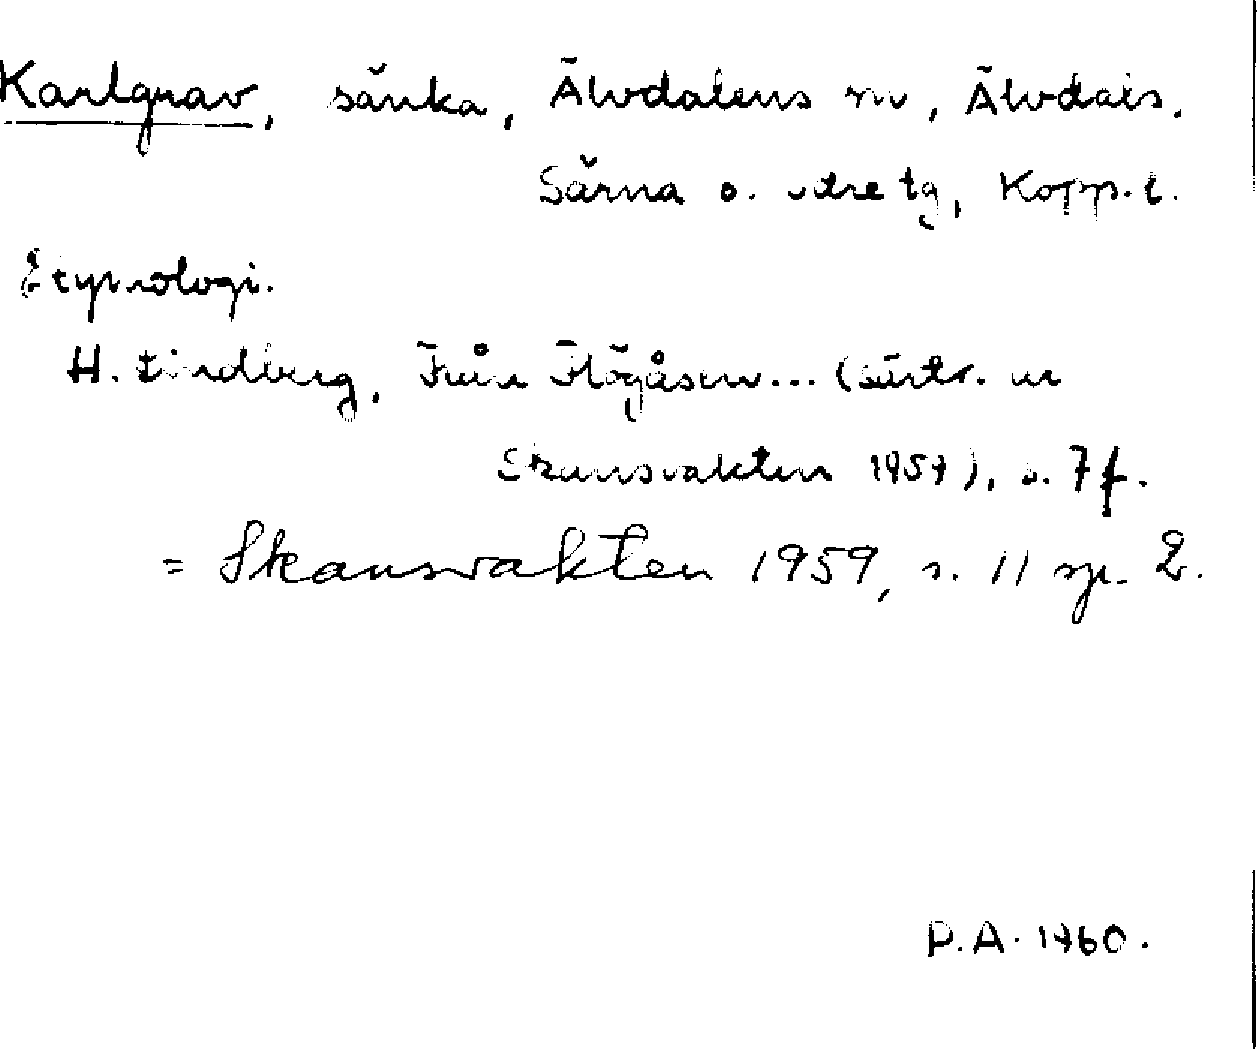 Karlgrav, sänka, Älvdalens sn, Älvdals.
Särna o. Idre tg, Kopp. l.
Etymologi.
H. Lindberg, Från Högåsen... (särtr. ur
Skansvakten 1959), s. 7 f.
= Skansvakten 1959, s. 11 sp. 2.
P.A. 1960.